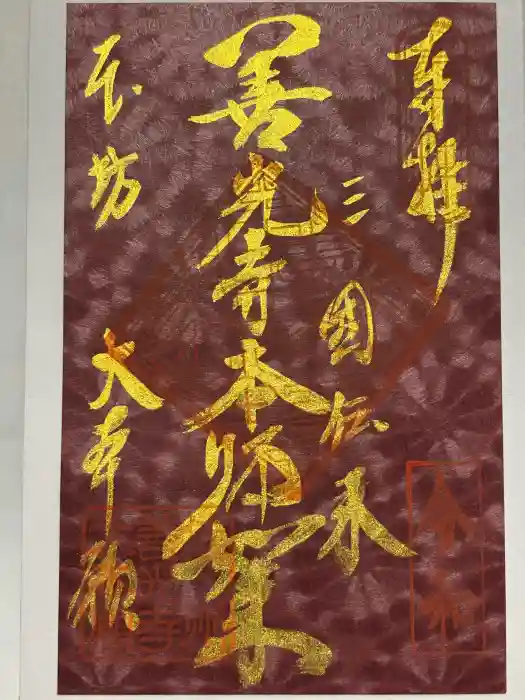 奉拝
三国伝来
善光寺本師如来
本坊
大本願